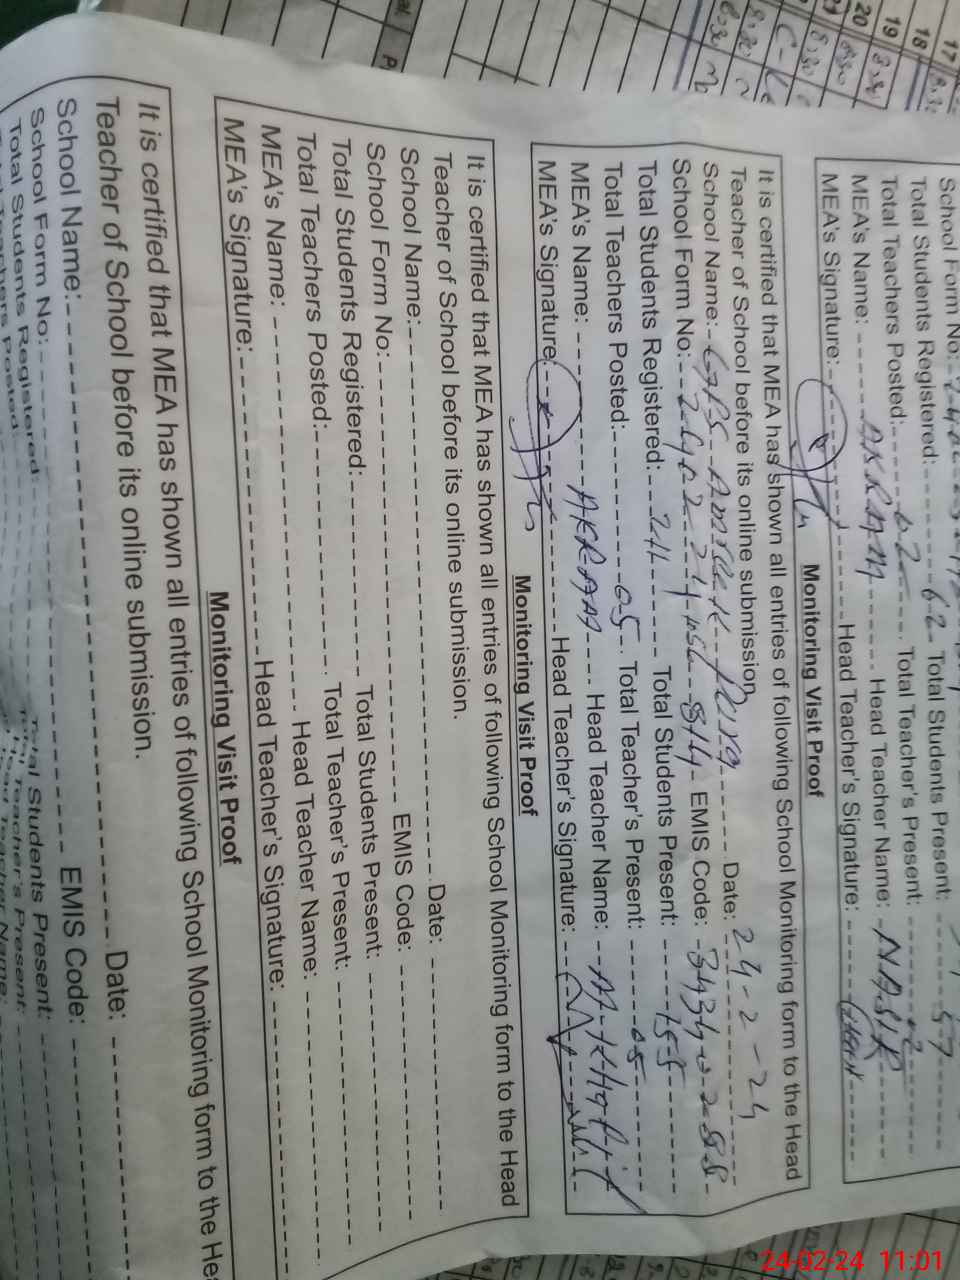 17
18
19 8:30
20 8:30
School Form No:
Total Students Registered: 62 Total Students Present: 57
Total Teachers Posted: 02 Total Teacher's Present: 02
MEA's Name: AKRAM Head Teacher Name: NASIR
MEA's Signature: Head Teacher's Signature:
Monitoring Visit Proof
It is certified that MEA has shown all entries of following School Monitoring form to the Head
Teacher of School before its online submission.
School Name: GPS Date: 24-2-24
School Form No: EMIS Code:
Total Students Registered: 211 Total Students Present: 155
Total Teachers Posted: 05 Total Teacher's Present: 05
MEA's Name: AKRAM Head Teacher Name:
MEA's Signature: Head Teacher's Signature:
Monitoring Visit Proof
It is certified that MEA has shown all entries of following School Monitoring form to the Head
Teacher of School before its online submission.
School Name: Date:
School Form No: EMIS Code:
Total Students Registered: Total Students Present:
Total Teachers Posted: Total Teacher's Present:
MEA's Name: Head Teacher Name:
MEA's Signature: Head Teacher's Signature:
Monitoring Visit Proof
It is certified that MEA has shown all entries of following School Monitoring form to the Hea
Teacher of School before its online submission.
School Name: Date:
School Form No: EMIS Code:
Total Students Registered: Total Students Present:
Total Teachers Posted: Total Teacher's Present:
Head Teacher Name:
24-02-24 11:01